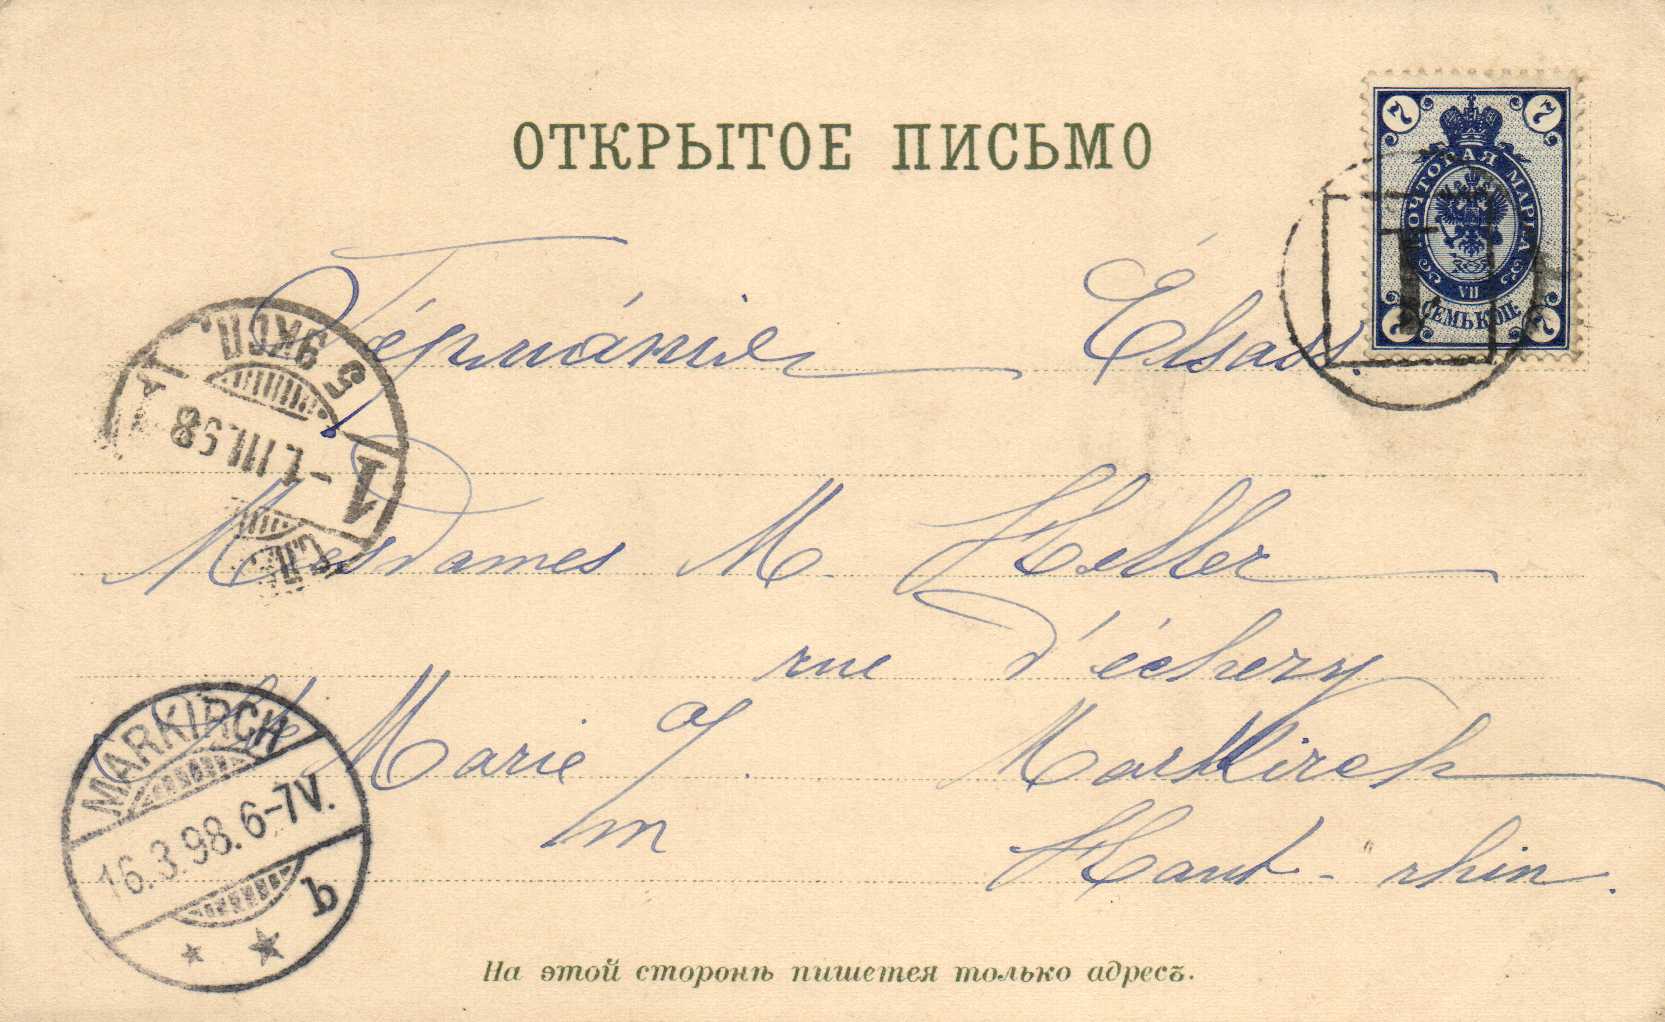 ОТКРЫТОЕ ПИСЬМО
7 7
ПОЧТОВАЯ МАРКА
VII
СЕМЬ КОП.
7 7
Германія Elsass.
5 ЭКСП.
1
-1.III.98
Mesdames M. Heller
rue d'échery
Marie Markirch
Haut-rhin.
MARKIRCH
16.3.98. 6-7V.
b
На этой сторонѣ пишется только адресъ.